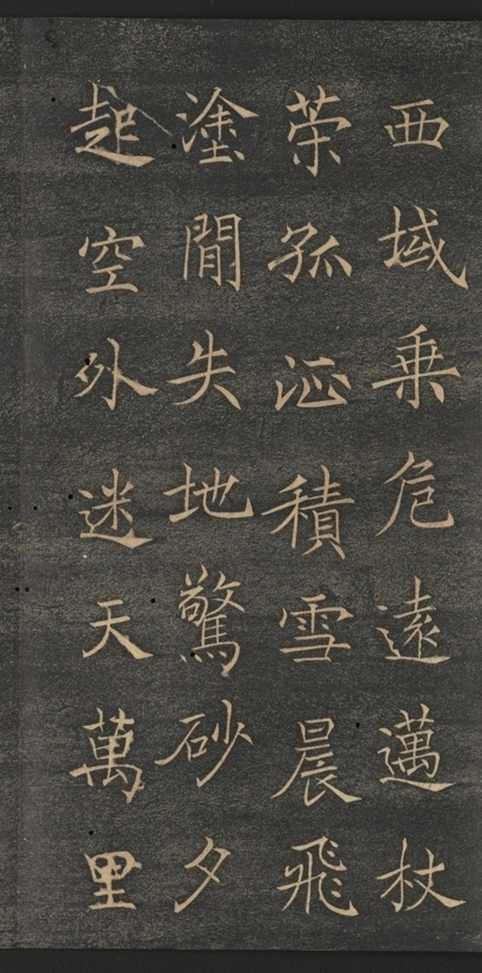 西域乗危遠邁杖
荣孤泝積雪晨飛
塗間失地驚砂夕
起空外迷天萬里